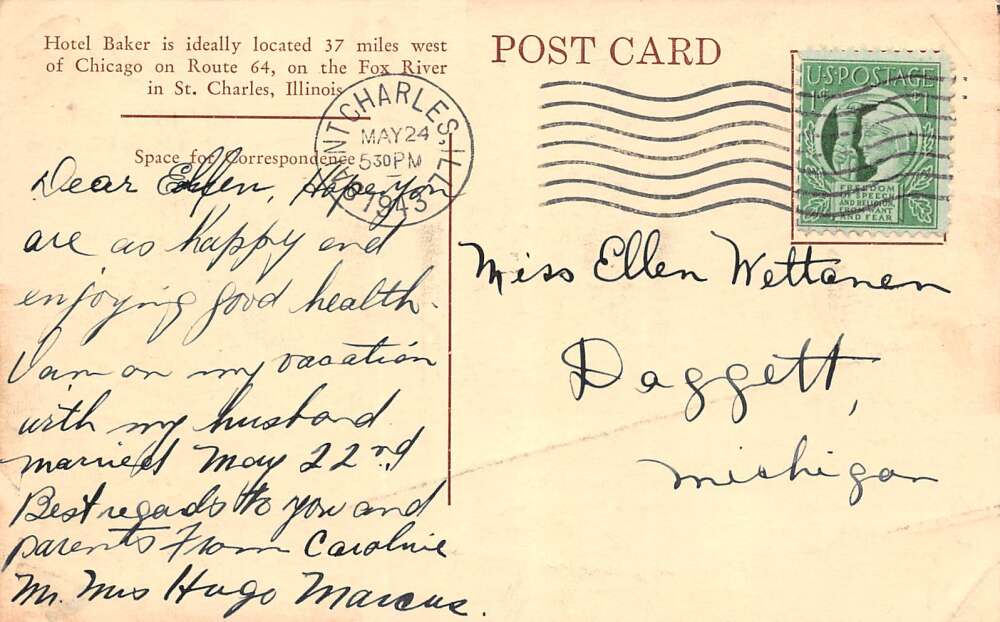 Hotel Baker is ideally located 37 miles west
of Chicago on Route 64, on the Fox River
in St. Charles, Illinois
Space for Correspondence
Dear Ellen, Hope you
are as happy and
enjoying good health.
I am on my vacation
with my husband
married May 22nd
Best regards to you and
parents From Caroline
Mr. Mrs Hugo Marcus.
POST CARD
SAINT CHARLES, ILL.
MAY 24
530 PM
1943
U.S. POSTAGE
1¢ 1¢
FREEDOM
OF SPEECH
AND RELIGION,
FROM WANT
AND FEAR
Miss Ellen Wettanen
Daggett,
Michigan